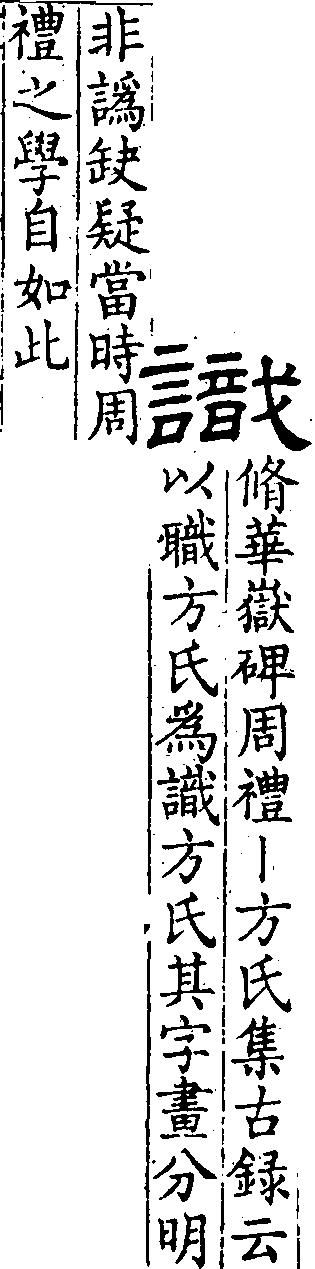 識
脩華嶽碑周禮丨方氏集古録云
以職方氏爲識方氏其字畫分明
非譌缺疑當時周
禮之學自如此